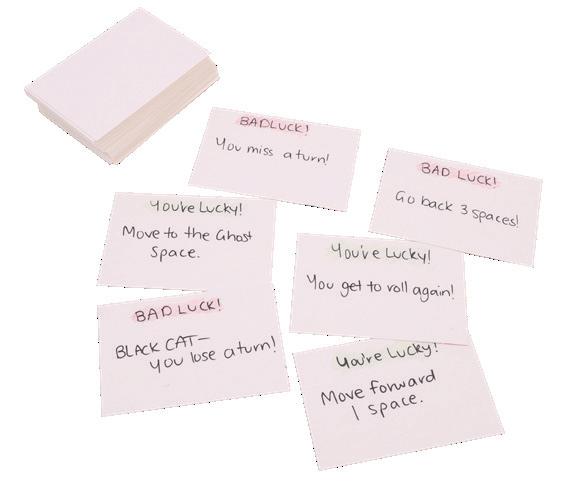 BADLUCK!
You miss a turn!
BAD LUCK!
Go back 3 spaces!
You're Lucky!
Move to the Ghost
Space.
You're Lucky!
You get to roll again!
BAD LUCK!
BLACK CAT-
you lose a turn!
You're Lucky!
Move forward
1 space.